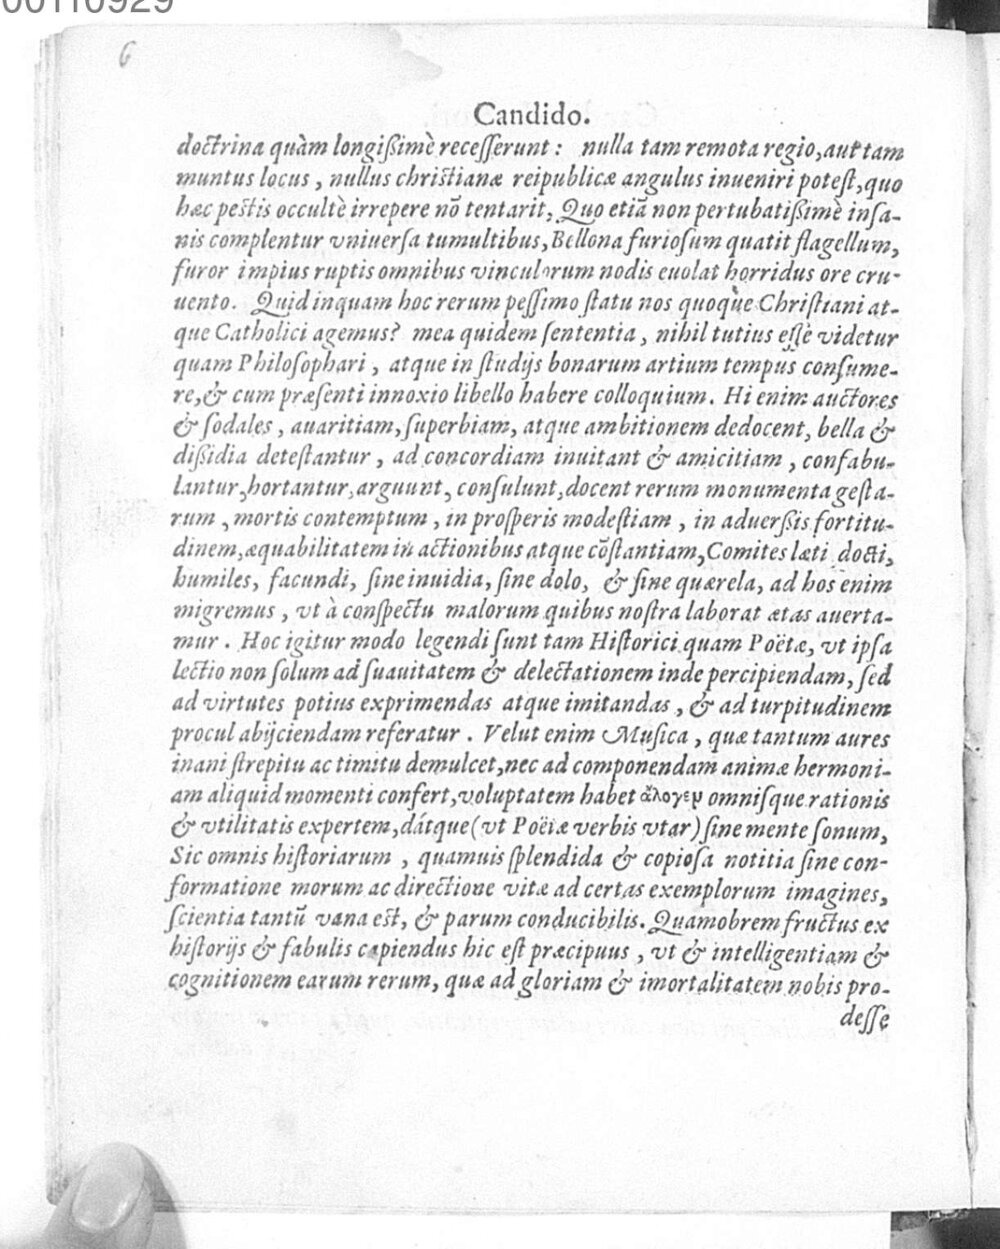 00110929
6
Candido.
doctrina quàm longißimè recesserunt: nulla tam remota regio, aut tam
muntus locus, nullus christianæ reipublicæ angulus inueniri potest, quo
hæc pestis occultè irrepere nõ tentarit, Quo etiã non pertubatißimè insa-
nis complentur vniuersa tumultibus, Bellona furiosum quatit flagellum,
furor impius ruptis omnibus vinculorum nodis euolat horridus ore cru-
uento. Quid inquam hoc rerum pessimo statu nos quoque Christiani at-
que Catholici agemus? mea quidem sententia, nihil tutius esse videtur
quam Philosophari, atque in studijs bonarum artium tempus consume-
re, & cum præsenti innoxio libello habere colloquium. Hi enim auctores
& sodales, auaritiam, superbiam, atque ambitionem dedocent, bella &
dißidia detestantur, ad concordiam inuitant & amicitiam, confabu-
lantur, hortantur, arguunt, consulunt, docent rerum monumenta gesta-
rum, mortis contemptum, in prosperis modestiam, in aduerßis fortitu-
dinem, æquabilitatem in actionibus atque cõstantiam, Comites læti docti,
humiles, facundi, sine inuidia, sine dolo, & sine quærela, ad hos enim
migremus, vt à conspectu malorum quibus nostra laborat ætas auerta-
mur. Hoc igitur modo legendi sunt tam Historici quam Poëtæ, vt ipsa
lectio non solum ad suauitatem & delectationem inde percipiendam, sed
ad virtutes potius exprimendas atque imitandas, & ad turpitudinem
procul abijciendam referatur. Velut enim Musica, quæ tantum aures
inani strepitu ac timitu demulcet, nec ad componendam animæ hermoni-
am aliquid momenti confert, voluptatem habet ἄλογερ omnisque rationis
& vtilitatis expertem, dátque (vt Poëtæ verbis vtar) sine mente sonum,
Sic omnis historiarum, quamuis splendida & copiosa notitia sine con-
formatione morum ac directione vitæ ad certas exemplorum imagines,
scientia tantũ vana est, & parum conducibilis. Quamobrem fructus ex
historijs & fabulis capiendus hic est præcipuus, vt & intelligentiam &
cognitionem earum rerum, quæ ad gloriam & imortalitatem nobis pro-
desse